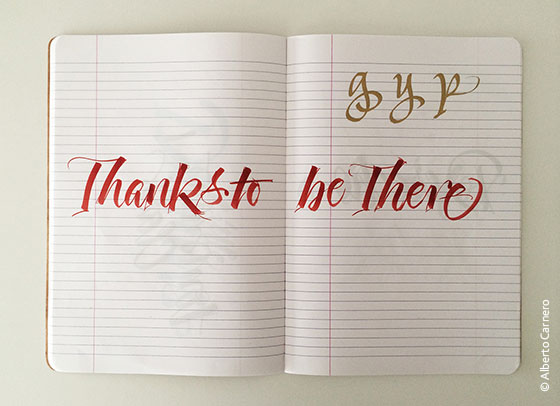 g y p
Thanks to be There
© Alberto Carnero